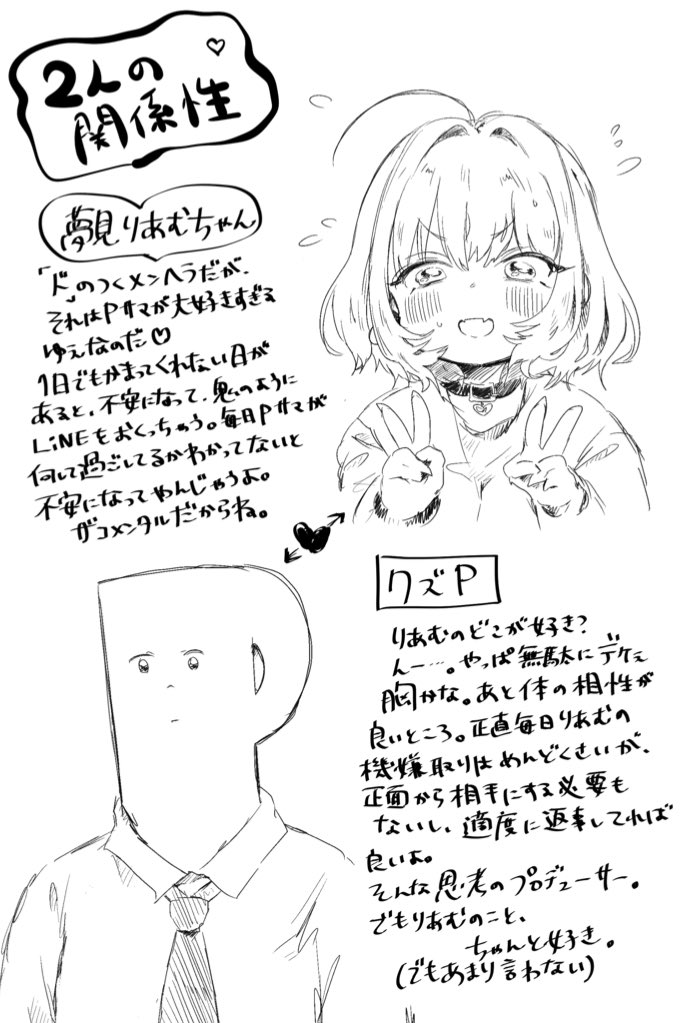 2人の
関係性
夢見りあむちゃん
「ド」のつくメンヘラだが、
それはPサマが大好きすぎる
ゆえなのだ♡
1日でもかまってくれない日が
あると、不安になって、鬼のように
LiNEもおくっちゃう。毎日Pサマが
何して過ごしてるかわかってないと
不安になってやんじゃうよ。
ザコメンタルだからね。
クズP
りあむのどこが好き?
んー…。やっぱ無駄にデケぇ
胸かな。あと体の相性が
良いところ。正直毎日りあむの
機嫌取りはめんどくさいが、
正面から相手にする必要も
ないし、適度に返事してれば
良いよ。
そんな思考のプロデューサー。
でもりあむのこと、
ちゃんと好き。
(でもあまり言わない)